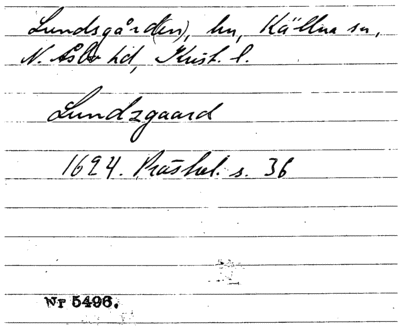 Lundsgård(en), hn, Källna sn,
N. Åsbo hd, Krist. l.
Lundzgaard
1624. Prästrel. s. 36
Nr 5496.